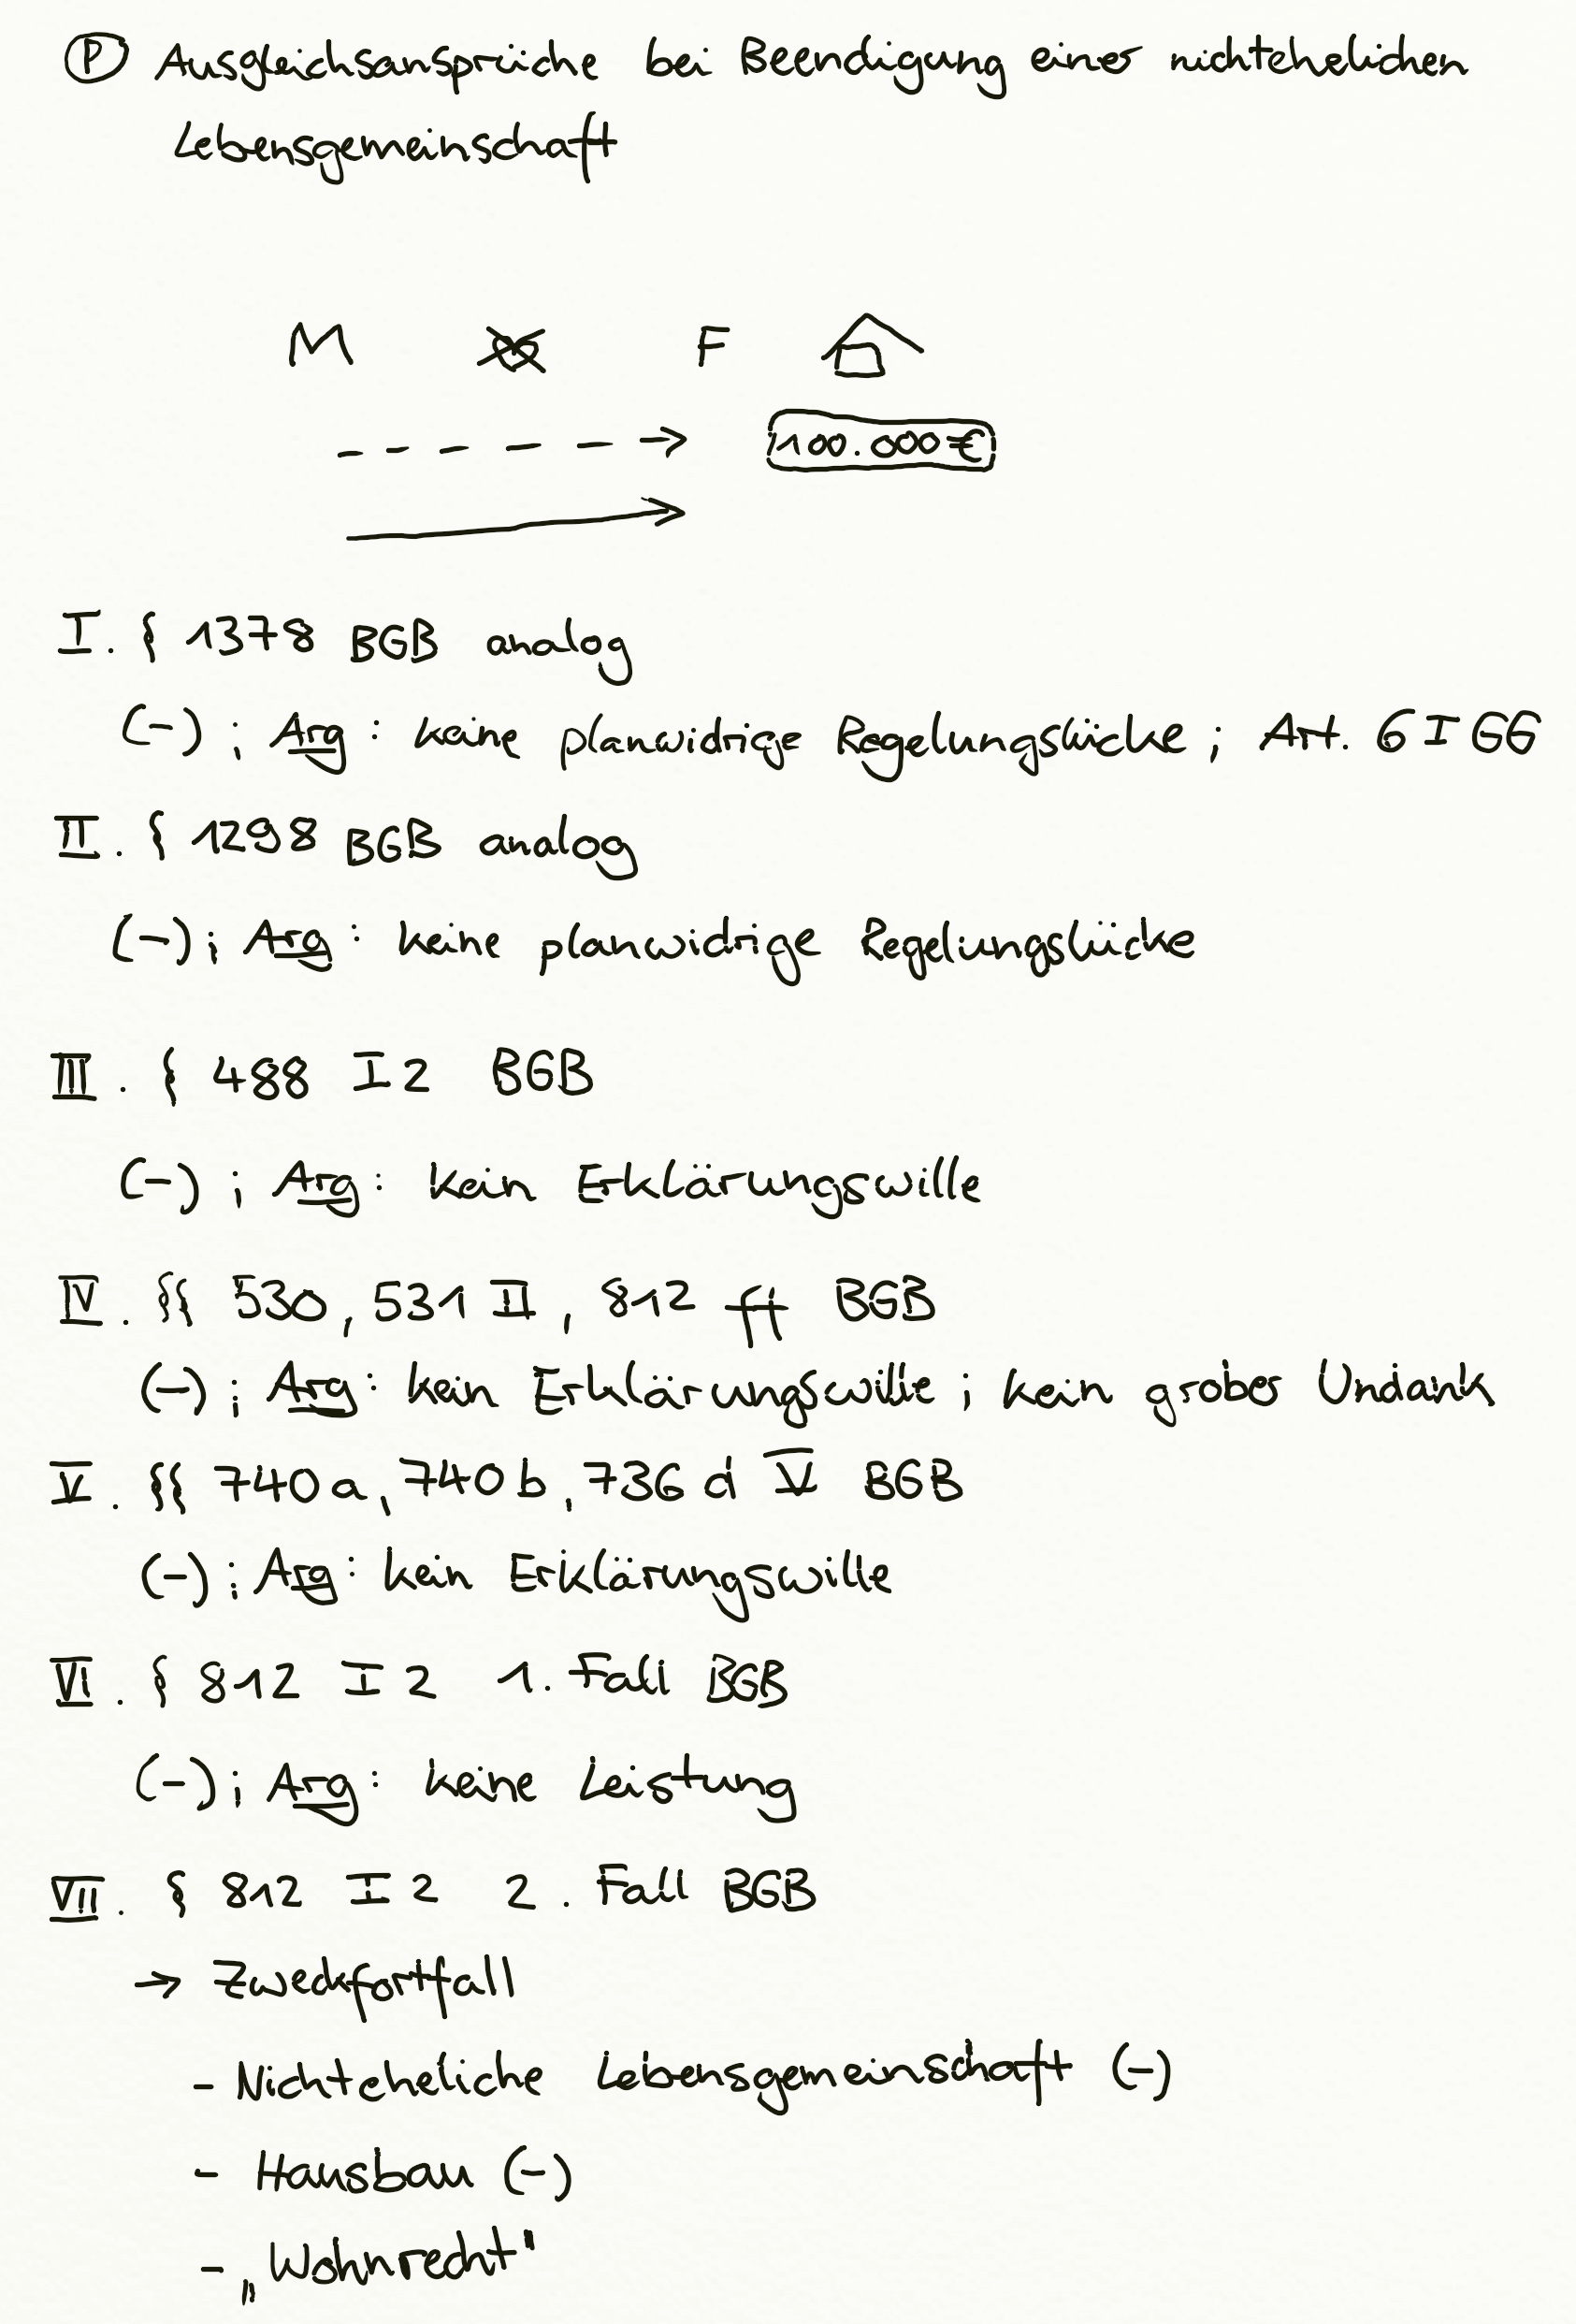 Ⓟ Ausgleichsansprüche bei Beendigung einer nichtehelichen
Lebensgemeinschaft
M F
100.000 €
I. § 1378 BGB analog
(-) ; Arg : keine planwidrige Regelungslücke ; Art. 6 I GG
II. § 1298 BGB analog
(-) ; Arg : keine planwidrige Regelungslücke
III. § 488 I 2 BGB
(-) ; Arg : kein Erklärungswille
IV. §§ 530, 531 II, 812 ff BGB
(-) ; Arg : kein Erklärungswille ; kein grober Undank
V. §§ 740 a, 740 b, 736 d V BGB
(-) ; Arg : kein Erklärungswille
VI. § 812 I 2 1. Fall BGB
(-) ; Arg : keine Leistung
VII. § 812 I 2 2. Fall BGB
→ Zweckfortfall
- Nichteheliche Lebensgemeinschaft (-)
- Hausbau (-)
- „Wohnrecht"